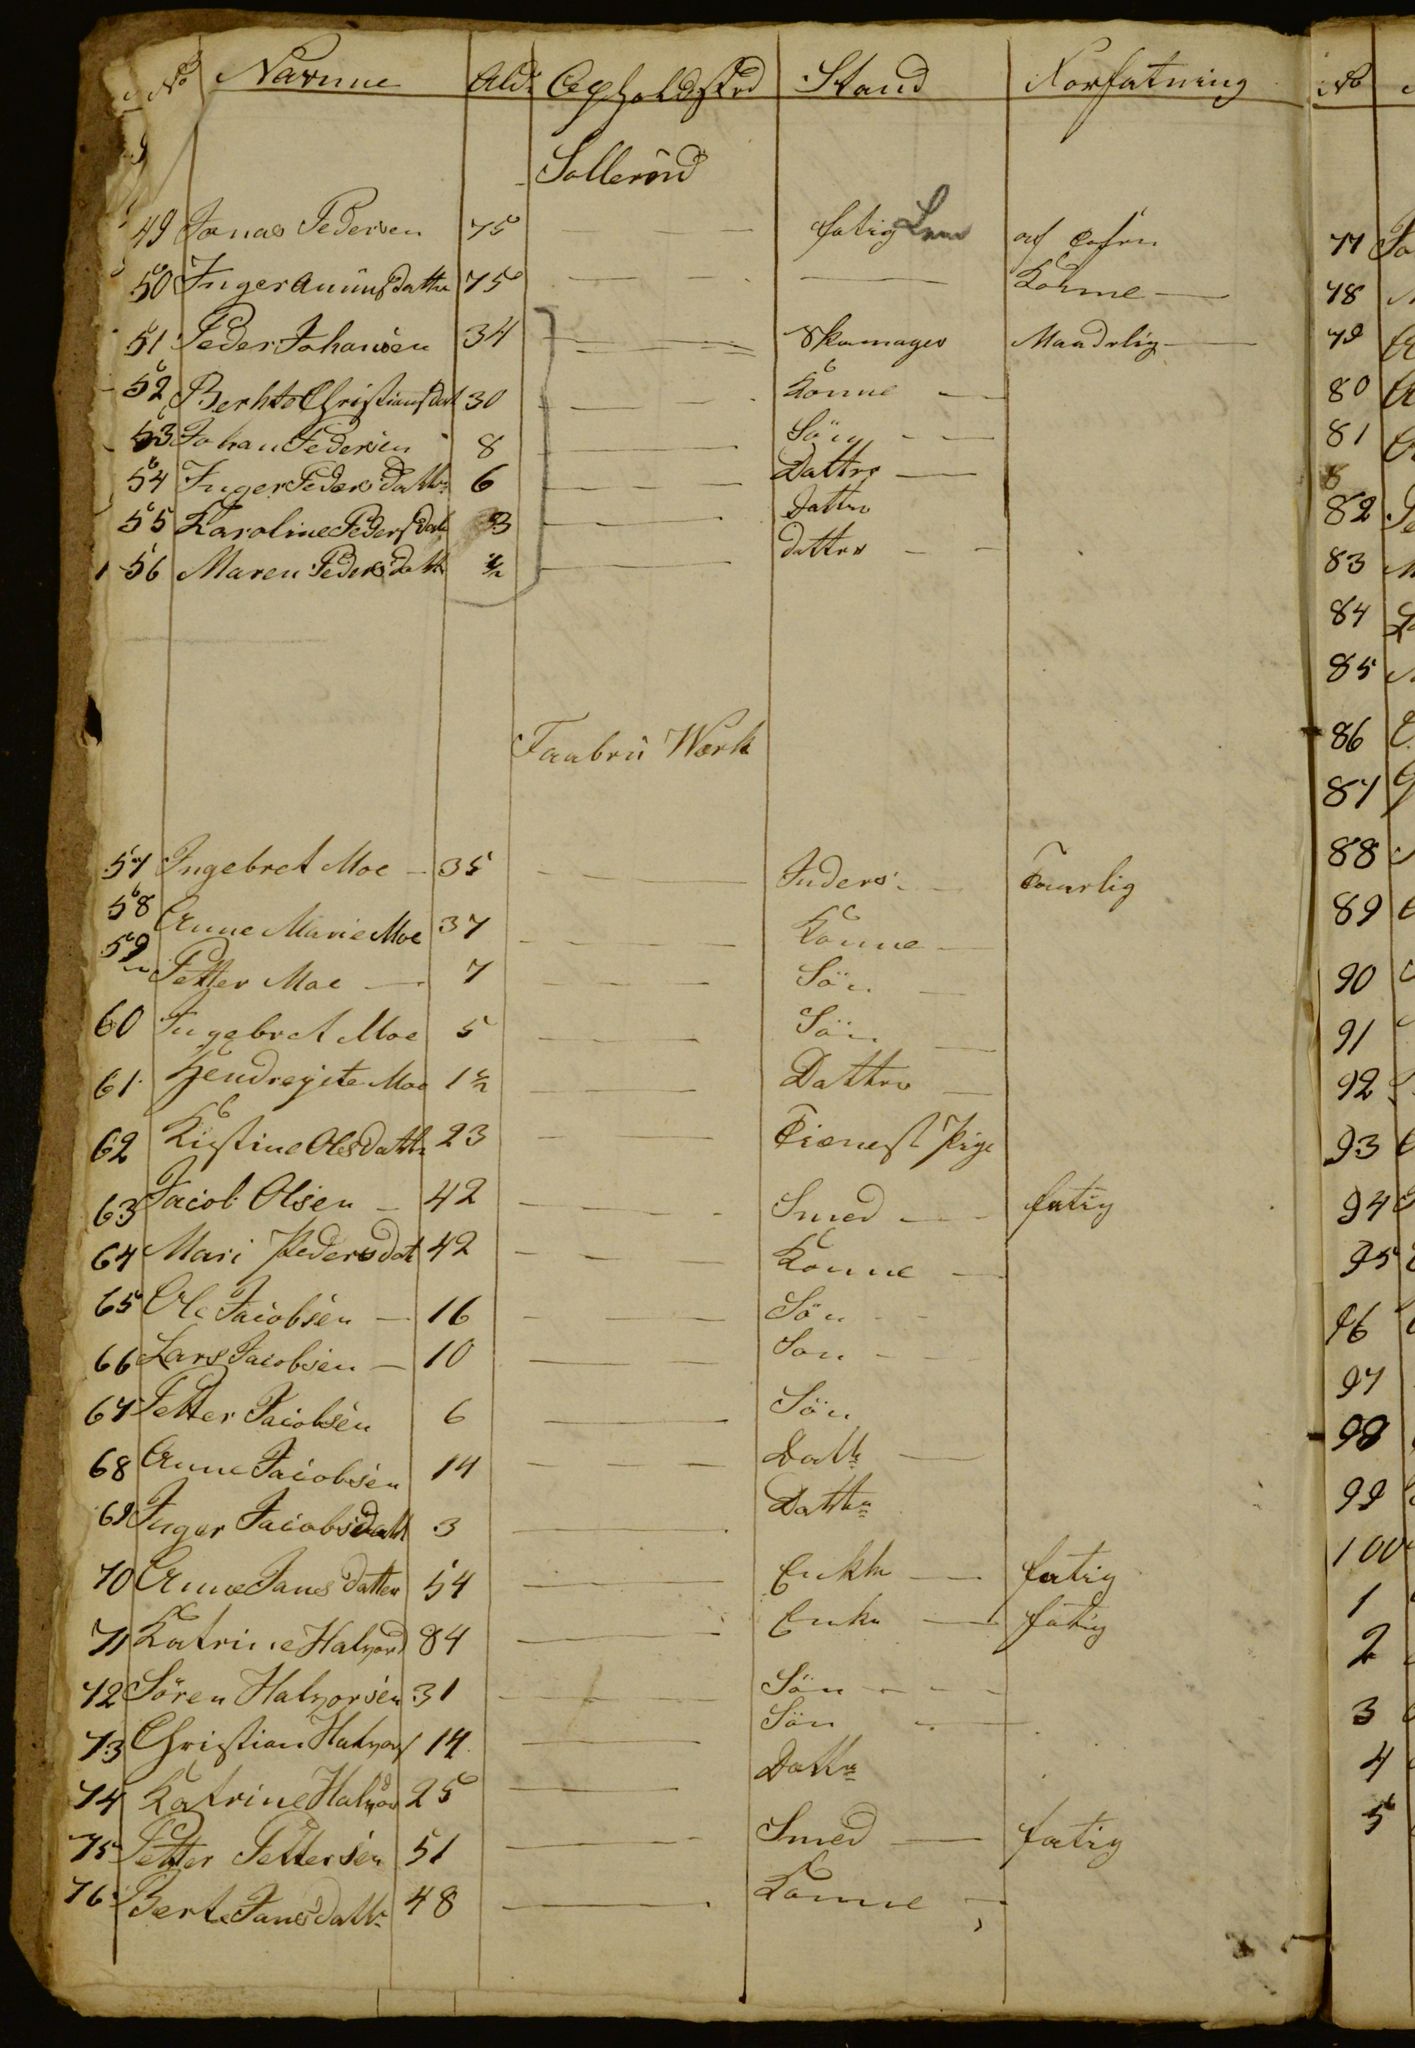 No Navnne Ald: Opholdsted Stand Forfatning
Sollerød
49 Jonas Pedersen 75 — — — fatig Lem
50 Inger datter 75 — — — — Konne —
51 Peder Johansen 34 — — Skomager Maadelig —
52 Berhte Christiansdat 30 — — — Konne —
53 Johan Pedersen 8 — — Sön — —
54 Inger Peders Datt: 6 — — — Datter —
55 Karoline Pedersdat 3 — — Datter
56 Maren Peders datt 1/2 — — datter — —
Faabrü Werk
57 Ingebret Moe — 35 — — Inders: — Taarlig
58 Anne Marie Moe 37 — — — Konne —
59 Petter Moe — 7 — — — Sön —
60 Ingebret Moe 5 — — Sön —
61 Hendregite Moe 1 1/2 — — Datter —
62 Kirstine Olsdatt: 23 — — Tienest Pige
63 Jacob Olsen — 42 — — — Smed — — fatig
64 Mari Pedersdat 42 — — — Konne —
65 Ole Jacobsen — 16 — — Sön — —
66 Lars Jacobsen — 10 — — Son — —
67 Petter Jacobsen 6 — — Sön
68 Anne Jacobsen 14 — — — Datt: —
69 Inger Jacobsdatt 3 — — Datter
70 Anne Jans Datter 54 — — Enkke — fatig
71 Katrine Halvord 84 — — Enke — fatig
72 Sören Halvorsen 31 — — — Sön — — —
73 Christian Halvors 14 — — Sön — —
74 Katrine Halvord 25 — — Datter
75 Petter Pettersen 51 — — Smed — fatig
76 Berte Jansdatt: 48 — — Konne —
No
77
78
79
80
81
8
82
83
84
85
86
87
88
89
90
91
92
93
94
95
96
97
98
99
100
1
2
3
4
5